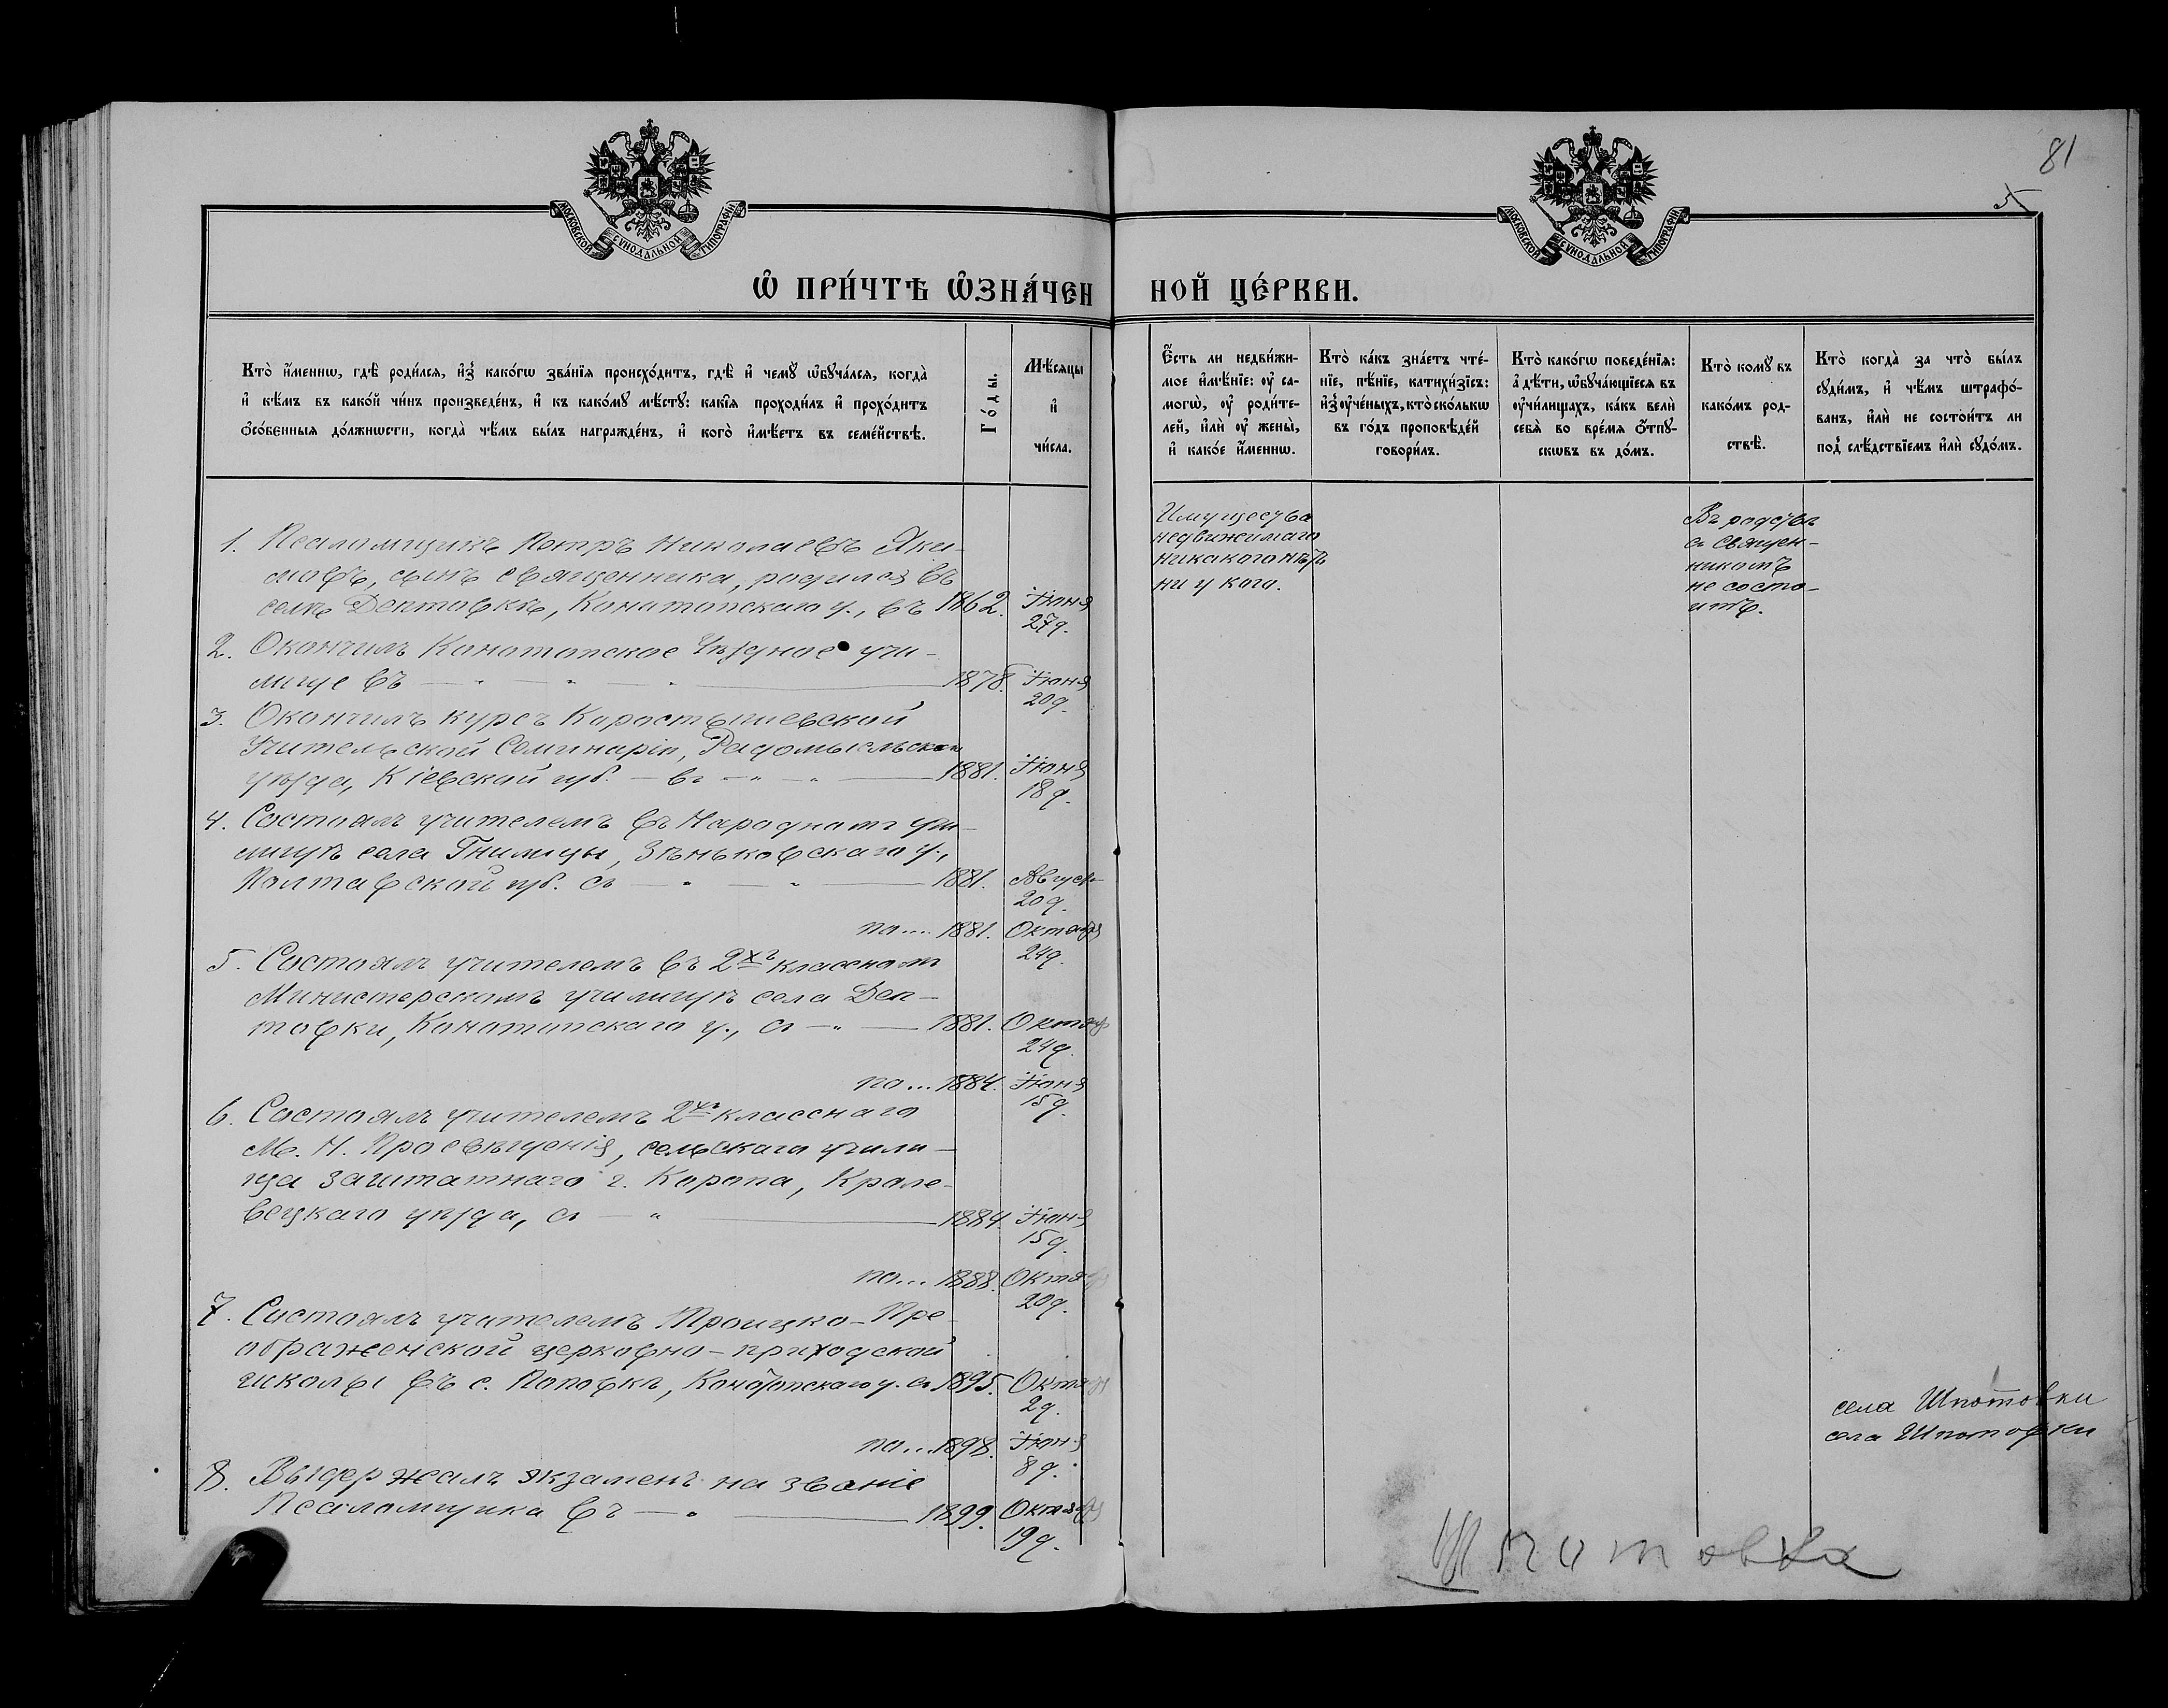 81
5
МОСКОВСКОЙ СѴНОДАЛЬНОЙ ТИПОГРАФІИ
МОСКОВСКОЙ СѴНОДАЛЬНОЙ ТИПОГРАФІИ
Ѡ ПРИ́ЧТѢ ѠЗНА́ЧЕННОЙ ЦЕ́РКВИ.
Кто̀ и҆́меннѡ, гдѣ̀ роди́лсѧ, и҆з̾ како́гѡ зва́нїѧ происхо́дитъ, гдѣ̀ и҆ чемꙋ̀ ѡ҆бꙋча́лсѧ, когда̀
и҆ кѣ́мъ въ како́й чи́нъ произведе́нъ, и҆ къ како́мꙋ мѣ́стꙋ: какі̑ѧ проходи́лъ и҆ прохо́дитъ
ѻ҆со́бенныѧ до́лжнѡсти, когда̀ чѣ́мъ бы́лъ награжде́нъ, и҆ кого̀ и҆мѣ́етъ въ семе́йствѣ.
Го́ды.
Мѣ́сѧцы
и҆
чи́сла.
Є҆́сть ли недви́жи-
мое и҆мѣ́нїе: ᲂу҆ са-
могѡ̀, ᲂу҆ роди́те-
лей, и҆лѝ ᲂу҆ жены̀,
и҆ како́е и҆́меннѡ.
Кто̀ ка́къ зна́етъ чте́-
нїе, пѣ́нїе, катихи́зїсъ:
и҆з̾ ᲂу҆че́ныхъ, кто̀ ско́лькѡ
въ го́дъ проповѣ́дей
говори́лъ.
Кто̀ како́гѡ поведе́нїѧ:
а҆ дѣ́ти, ѡ҆бꙋча́ющїесѧ въ
ᲂу҆чи́лищахъ, ка́къ велѝ
себѧ̀ во вре́мѧ ѿпꙋ-
скѡвъ въ до́мъ.
Кто̀ комꙋ̀ въ
како́мъ род-
ствѣ̀.
Кто̀ когда̀ за что̀ бы́лъ
сꙋди́мъ, и҆ чѣ́мъ штрафо́-
ванъ, и҆лѝ не состои́тъ ли
под̾ слѣ́дствїемъ и҆лѝ сꙋдо́мъ.
1. Псаломщикъ Петръ Николаевъ Яки-
мовъ, сынъ священника, родился въ
селѣ Дептовкѣ, Конотопскаго у., въ 1862. Іюня
27 д.
2. Окончилъ Конотопское Уѣздное учи-
лище въ 1878. Іюня
20 д.
3. Окончилъ курсъ Коростышевской
Учительской Семинаріи, Радомысльскаго
уѣзда, Кіевской губ. въ 1881. Іюня
18 д.
4. Состоялъ учителемъ въ Народномъ учи-
лищѣ села Гнилицы, Зѣньковскаго у.,
Полтавской губ. съ 1881. Августа
20 д.
по.... 1881. Октября
24 д.
5. Состоялъ учителемъ въ 2хъ классномъ
Министерскомъ училищѣ села Деп-
товки, Конотопскаго у., съ 1881. Октября
24 д.
по... 1884. Іюня
15 д.
6. Состоялъ учителемъ 2хъ класснаго
М. Н. Просвѣщенія, сельскаго учили-
ща заштатнаго г. Коропа, Кроле-
вецкаго уѣзда, съ 1884. Іюня
15 д.
по... 1888. Октября
20 д.
7. Состоялъ учителемъ Троицко-Пре-
ображенской церковно-приходской
школы въ с. Поповкѣ, Конотопскаго у. съ 1895. Октября
2 д.
по... 1898. Іюня
8 д.
8. Выдержалъ экзаменъ на званіе
Псаломщика въ 1899. Октября
19 д.
Имущества
недвижимаго
никакого нѣтъ
ни у кого.
Въ родствѣ
съ священ-
никомъ
не состо-
итъ.
села Шпотовки
села Шпотовки
Шпотовка